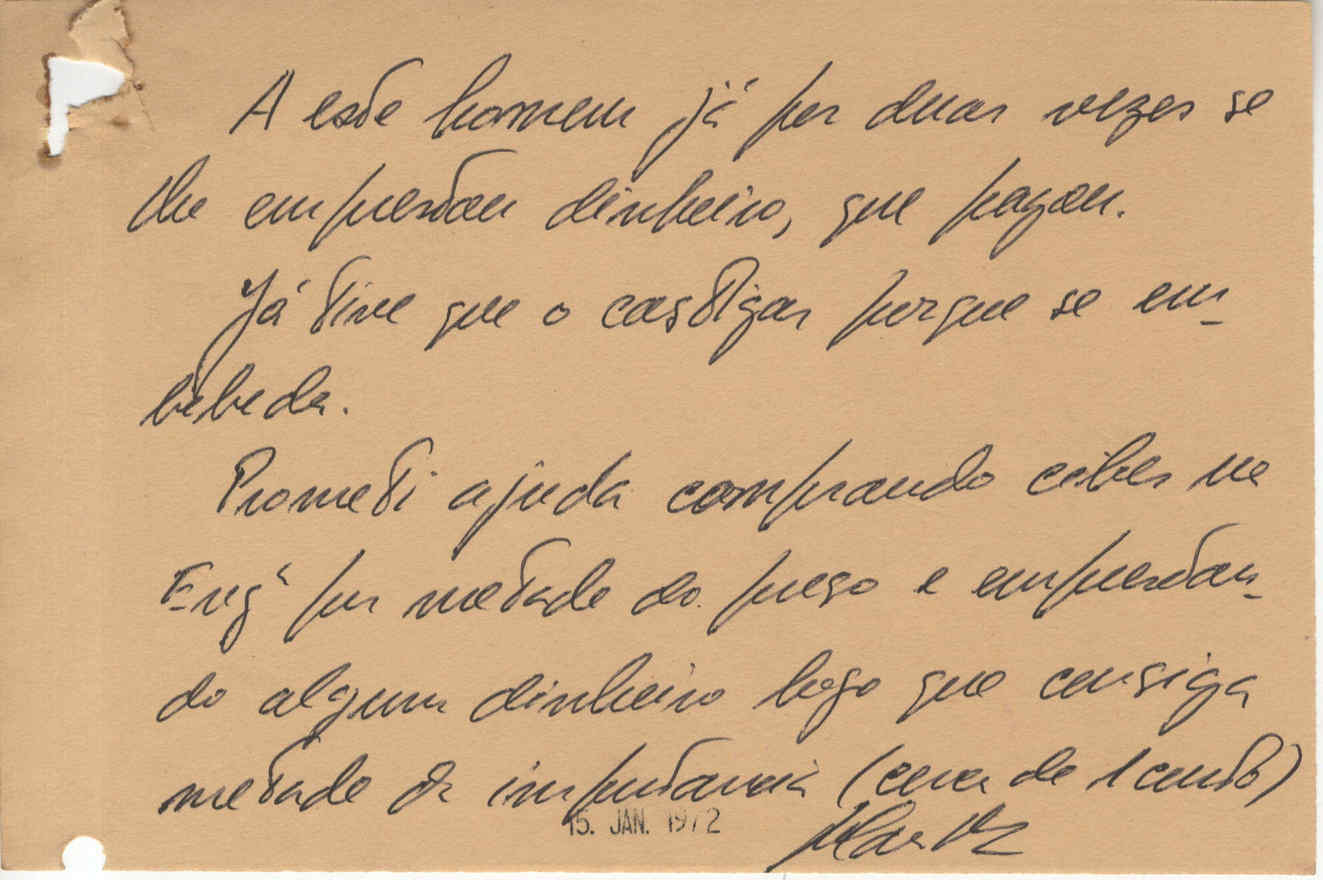 A este homem já por duas vezes se
lhe emprestou dinheiro, que pagou.
Já tive que o castigar porque se em-
bebeda.
Prometi ajuda comprando cibes na
Engª por metade do preço e emprestan-
do algum dinheiro logo que consiga
metade da importancia (cerca de 1 conto)
15. JAN. 1972